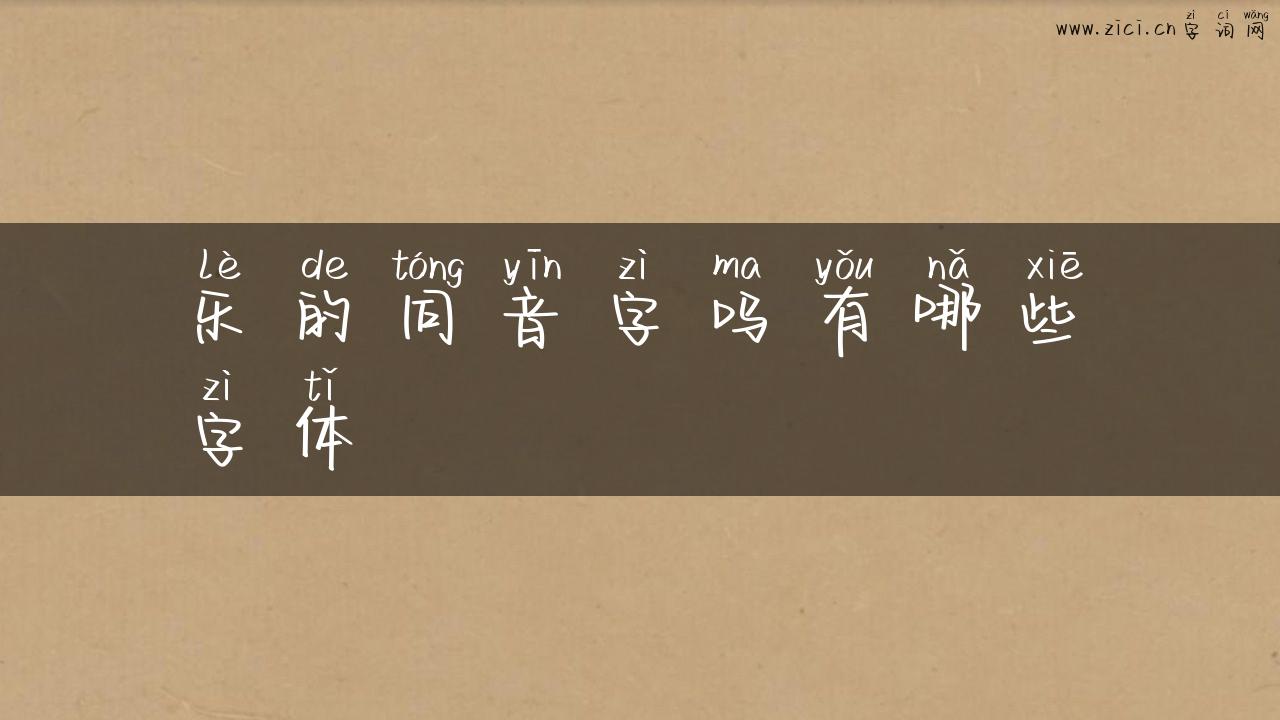 zì cí wǎng
www.zici.cn 字词网
lè de tóng yīn zì ma yǒu nǎ xiē
乐的同音字吗有哪些
zì tǐ
字体